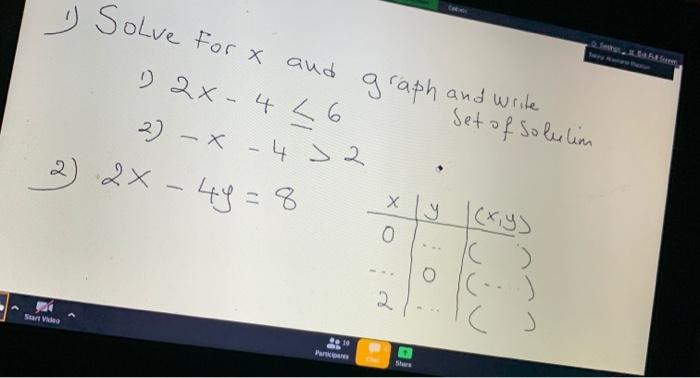 1) Solve For x and graph and write
Set of Solution
1) 2x - 4 ≤ 6
2) -x - 4 > 2
2) 2x - 4y = 8
x | y | (x,y)
0 | ... | ( )
... | 0 | (...)
2 | ... | ( )
Start Video
Participants
19
Chat
Share